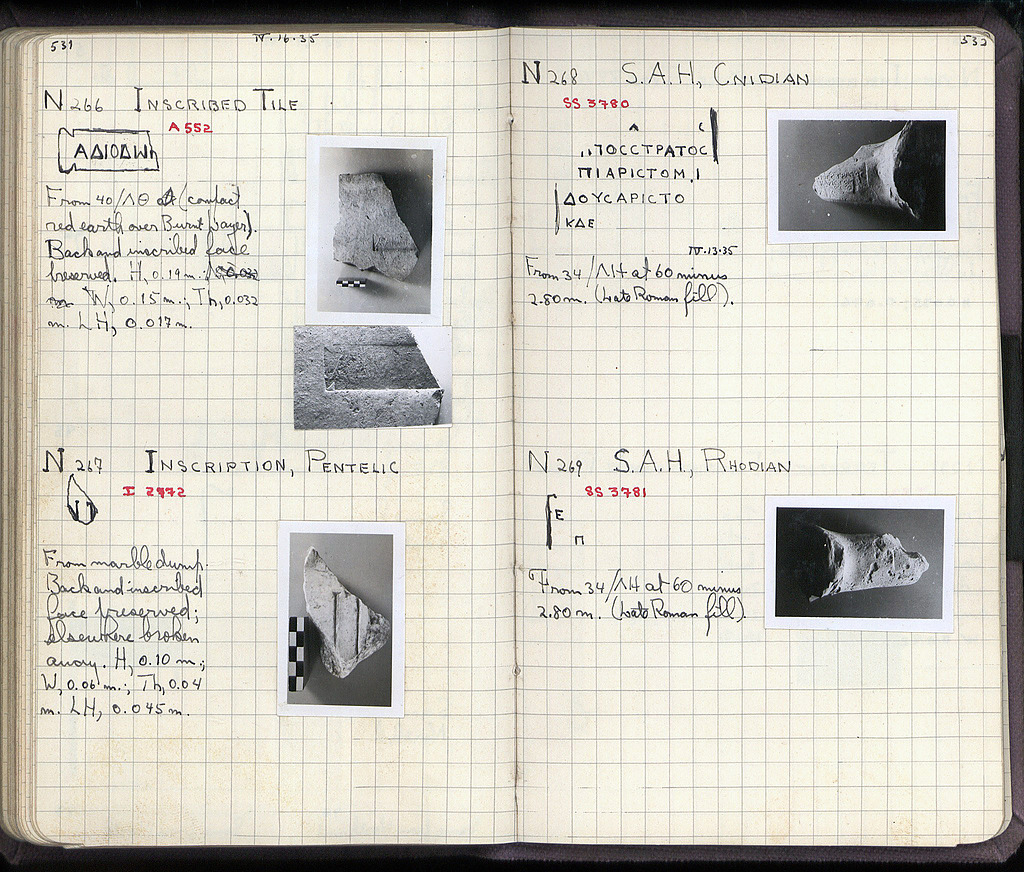 531
IV·16·35
N 266 INSCRIBED TILE
A 552
ΑΔΙΟΔΩ
From 40/ΛΘ at (contact
red earth over Burnt layer).
Back and inscribed face
preserved. H, 0.19 m.;
W, 0.15 m.; Th, 0.032
m. LH, 0.017 m.
N 267 INSCRIPTION, PENTELIC
I 2972
From marble dump.
Back and inscribed
face preserved;
elsewhere broken
away. H, 0.10 m.;
W, 0.06 m.; Th, 0.04
m. LH, 0.045 m.
532
N 268 S.A.H, CNIDIAN
SS 3780
Λ C
ΠΟCCΤΡΑΤΟC
ΠΙΑΡΙCΤΟΜ.Ι
ΔΟΥCΑΡΙCΤΟ
ΚΔΕ
IV·13·35
From 34/ΛΗ at 60 minus
2.80 m. (Late Roman fill).
N 269 S.A.H, RHODIAN
SS 3781
Ε
Π
From 34/ΛΗ at 60 minus
2.80 m. (Late Roman fill).